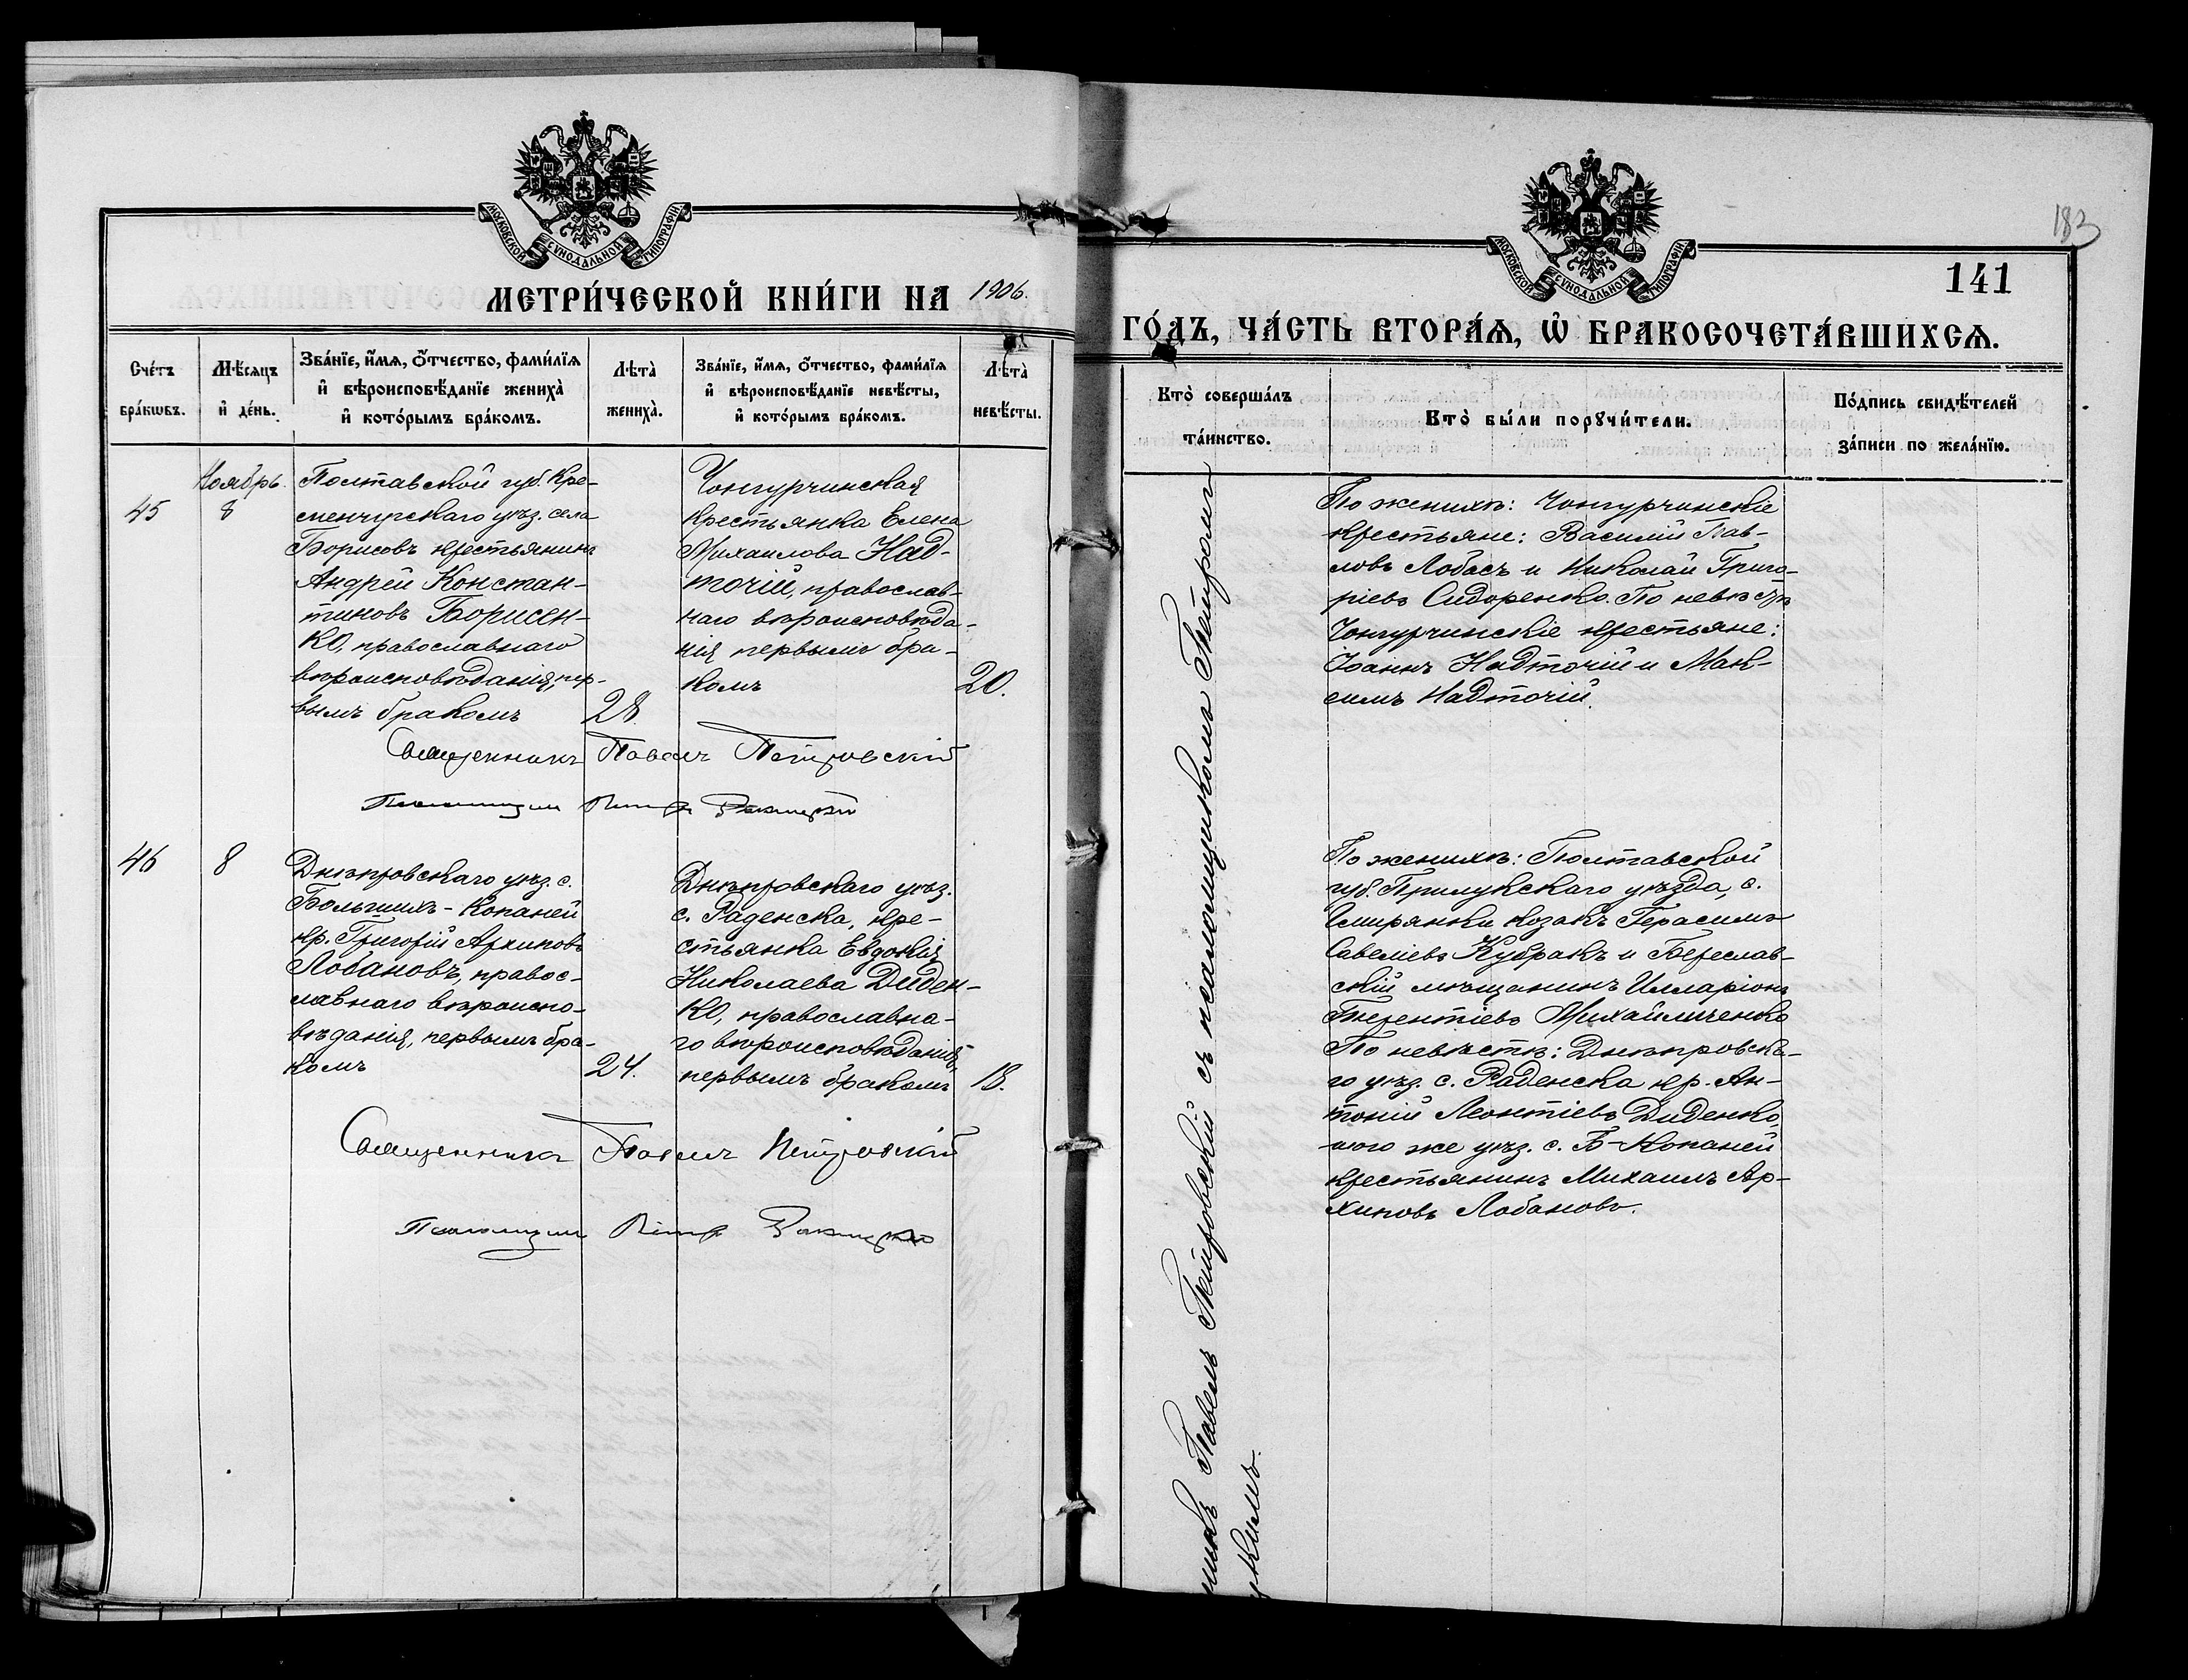 МОСКОВСКОЙ СѴНОДАЛЬНОЙ ТИПОГРАФІИ.
МЕТРИ́ЧЕСКОЙ КНИ́ГИ НА 1906.
Сче́тъ бра́кѡвъ.
Мѣ́сяцъ и҆ де́нь.
Зва́нїе, и҆́мѧ, ѻ҆́тчество, фами́лїѧ
и҆ вѣроисповѣ́данїе жениха̀
и҆ кото́рымъ бра́комъ.
Лѣта̀ жениха̀.
Зва́нїе, и҆́мѧ, ѻ҆́тчество, фами́лїѧ
и҆ вѣроисповѣ́данїе невѣ́сты,
и҆ кото́рымъ бра́комъ.
Лѣта̀ невѣ́сты.
45
Ноябрь.
8
Полтавской губ. Кре-
менчугскаго уѣз. села
Борисовъ крестьянинъ
Андрей Констан-
тиновъ Борисен-
ко, православнаго
вѣроисповѣданія, пер-
вымъ бракомъ
28.
Чонгурчинская
крестьянка Елена
Михаилова Над-
точій, православ-
наго вѣроисповѣда-
нія первымъ бра-
комъ
20.
Священникъ Павелъ Петровскій
Псаломщикъ Петръ
46
8
Днѣпровскаго уѣз. с.
Большихъ-Копаней
кр. Григорій Архиповъ
Лобановъ, правос-
лавнаго вѣроиспо-
вѣданія, первымъ бра-
комъ
24.
Днѣпровскаго уѣз.
с. Раденска, кре-
стьянка Евдокія
Николаева Диден-
ко, православна-
го вѣроисповѣданія,
первымъ бракомъ
18.
Священникъ Павелъ Петровскій
Псаломщикъ Петръ
183
МОСКОВСКОЙ СѴНОДАЛЬНОЙ ТИПОГРАФІИ.
141
ГО́ДЪ, ЧА́СТЬ ВТОРА́Ѧ, Ѡ҆ БРАКОСОЧЕТА́ВШИХСѦ.
Кто̀ соверша́лъ
та́инство.
Кто̀ бы́ли порꙋчи́тели.
По́дпись свидѣ́телей
за́писи по жела́нїю.
Павелъ Петровскій съ псаломщикомъ Петромъ
По женихѣ: Чонгурчинскіе
крестьяне: Василій Пав-
ловъ Лобасъ и Николай Григо-
ріевъ Сидоренко. По невѣстѣ
Чонгурчинскіе крестьяне:
Іоаннъ Надточій и Мак-
симъ Надточій.
По женихѣ: Полтавской
губ. Прилукскаго уѣзда, с.
козакъ Герасимъ
Савеліевъ Кубракъ и Береслав-
скій мѣщанинъ Илларіонъ
Терентіевъ Михайличенко
По невѣстѣ: Днѣпровска-
го уѣз. с. Раденска кр. Ан-
тоній Леонтіевъ Диденко,
того же уѣз. с. Б-Копаней
крестьянинъ Михаилъ Ар-
хиповъ Лобановъ.